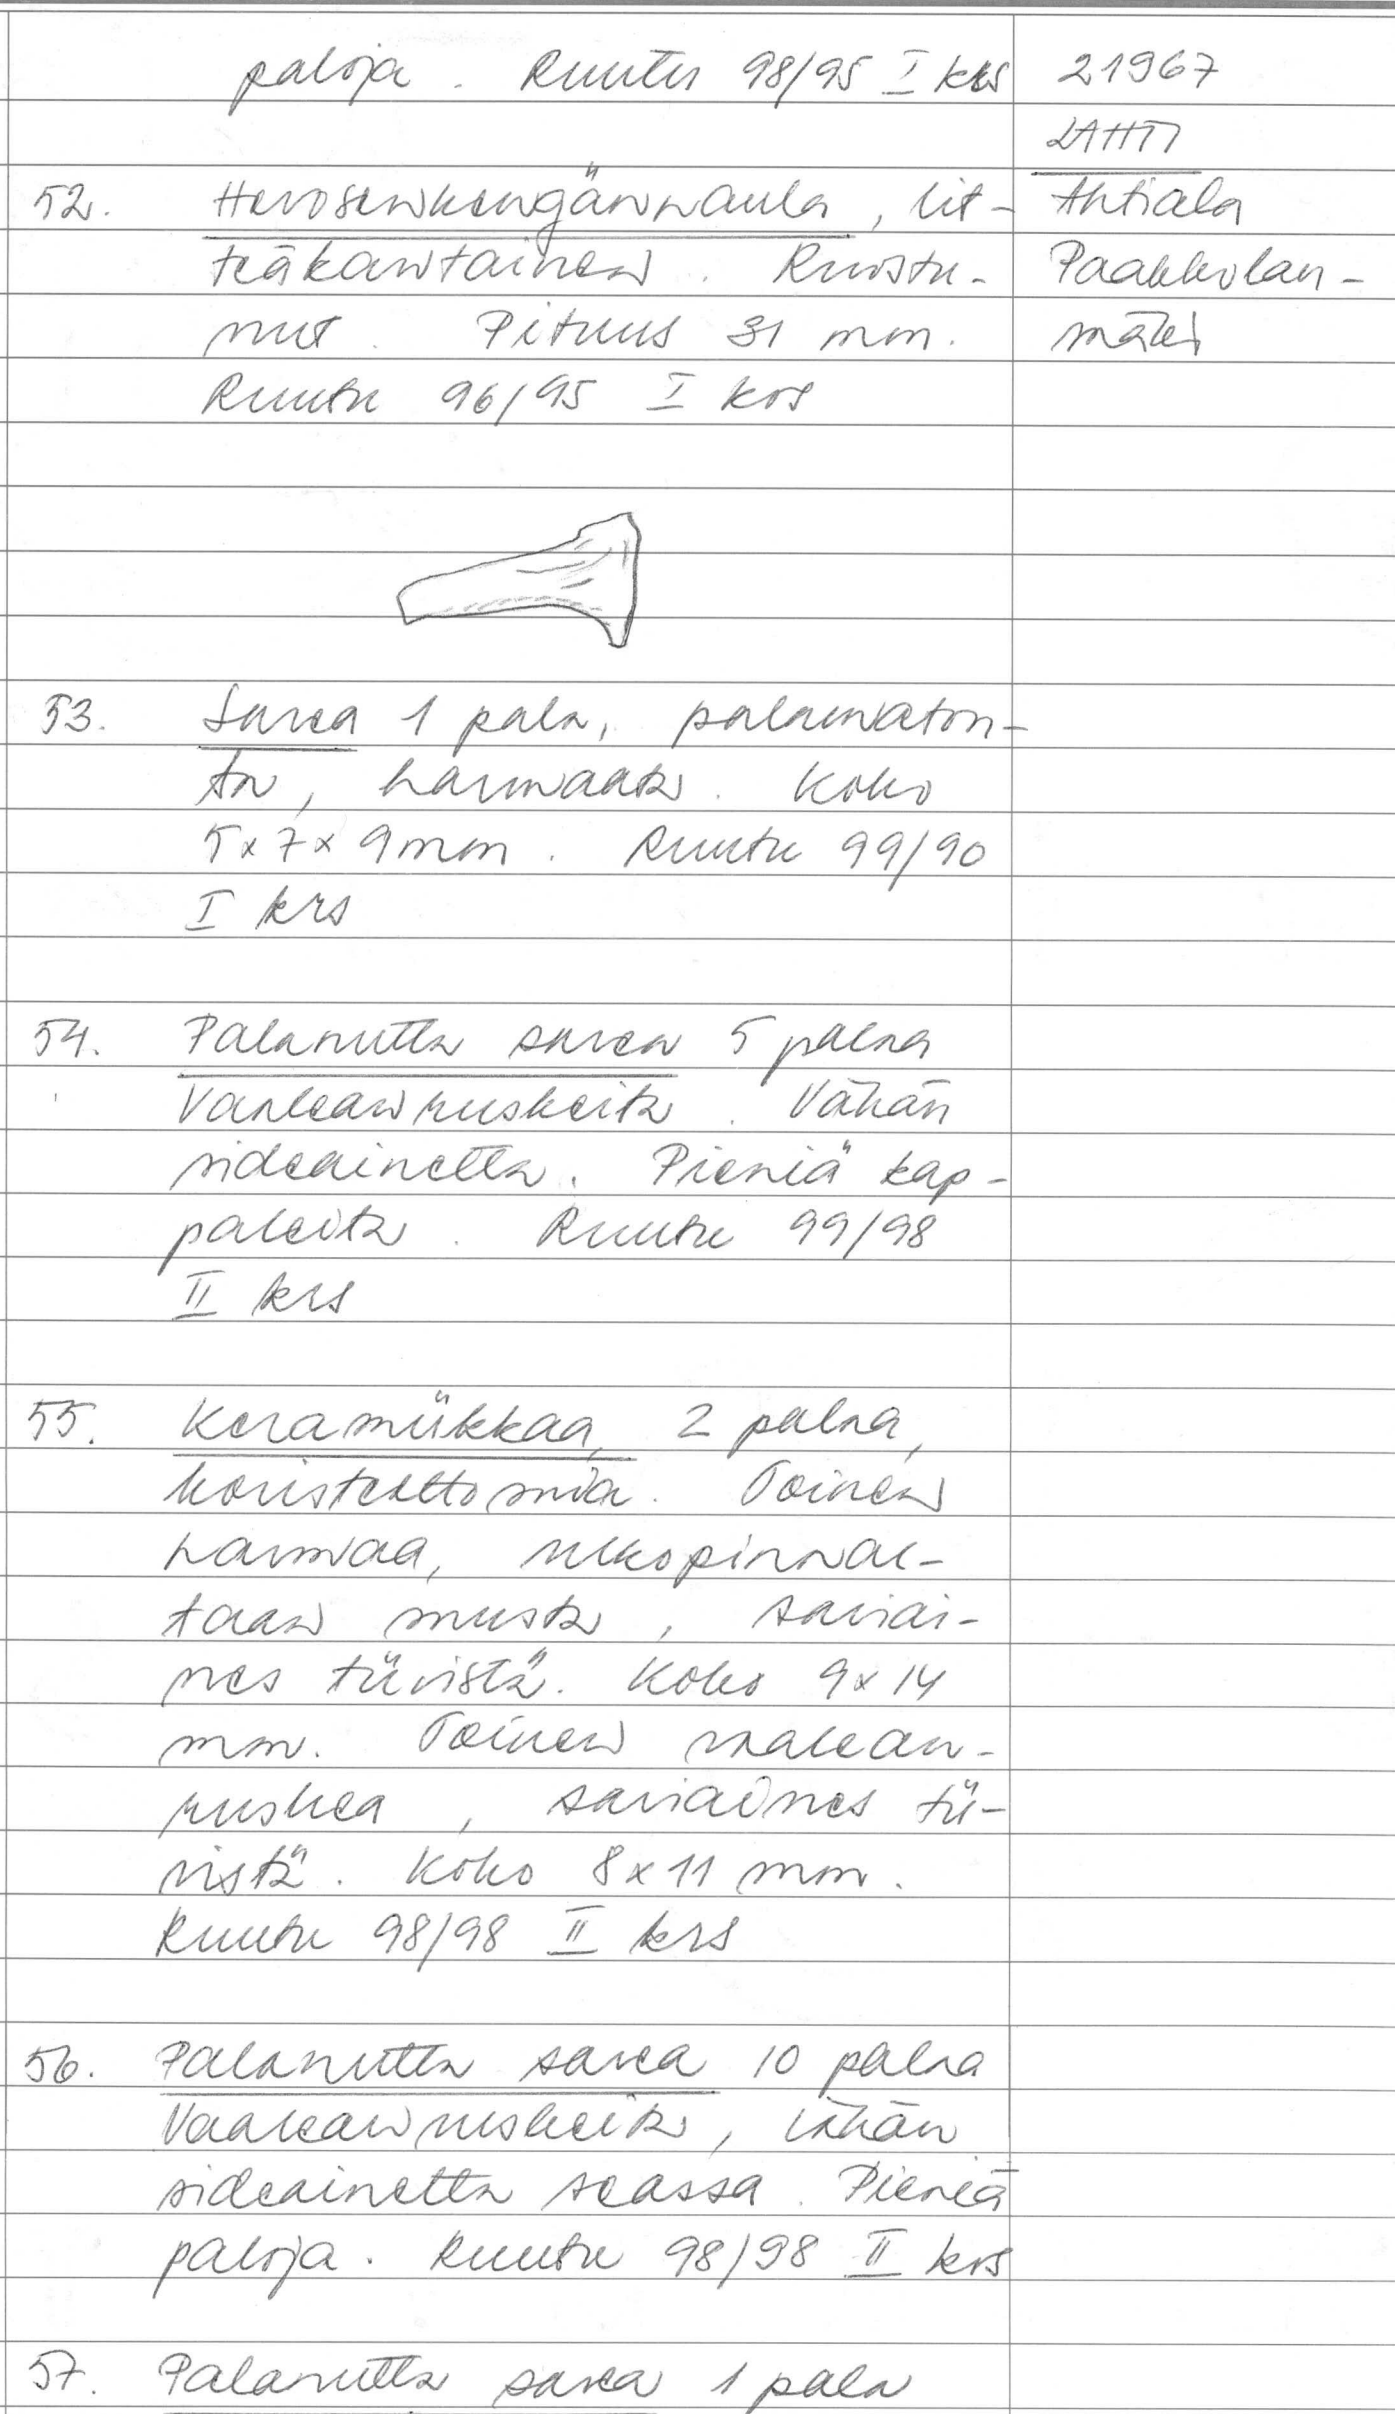 paloja. Ruutu 98/95 I krs
21967
LAHTI
Ahtiala
Paakkolan-
mäki
52. Hevosenkengännaula, lit-
teäkantainen. Ruostu-
nut. Pituus 31 mm.
Ruutu 96/95 I krs
53. Savea 1 pala, palamaton-
ta, harmaata. Koko
5x7x9mm. Ruutu 99/90
I krs
54. Palanutta savea 5 palaa
Vaaleanruskeita. Vähän
sideainetta. Pieniä kap-
paleita. Ruutu 99/98
II krs
55. Keramiikkaa, 2 palaa,
koristeettomia. Toinen
harmaa, ulkopinnal-
taan musta, saviai-
nes tiivistä. Koko 9x14
mm. Toinen vaalean-
ruskea, saviaines tii-
vistä. Koko 8x11 mm.
Ruutu 98/98 II krs
56. Palanutta savea 10 palaa
Vaaleanruskeita, vähän
sideainetta seassa. Pieniä
paloja. Ruutu 98/98 II krs
57. Palanutta savea 1 pala